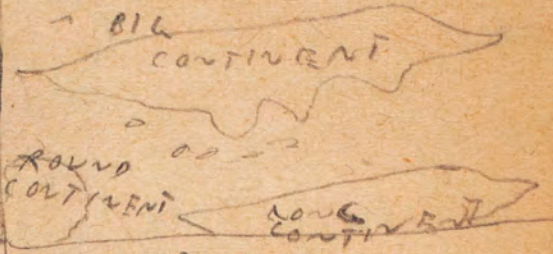 BIG
CONTINENT
ROUND
CONTINENT
LONG
CONTINENT